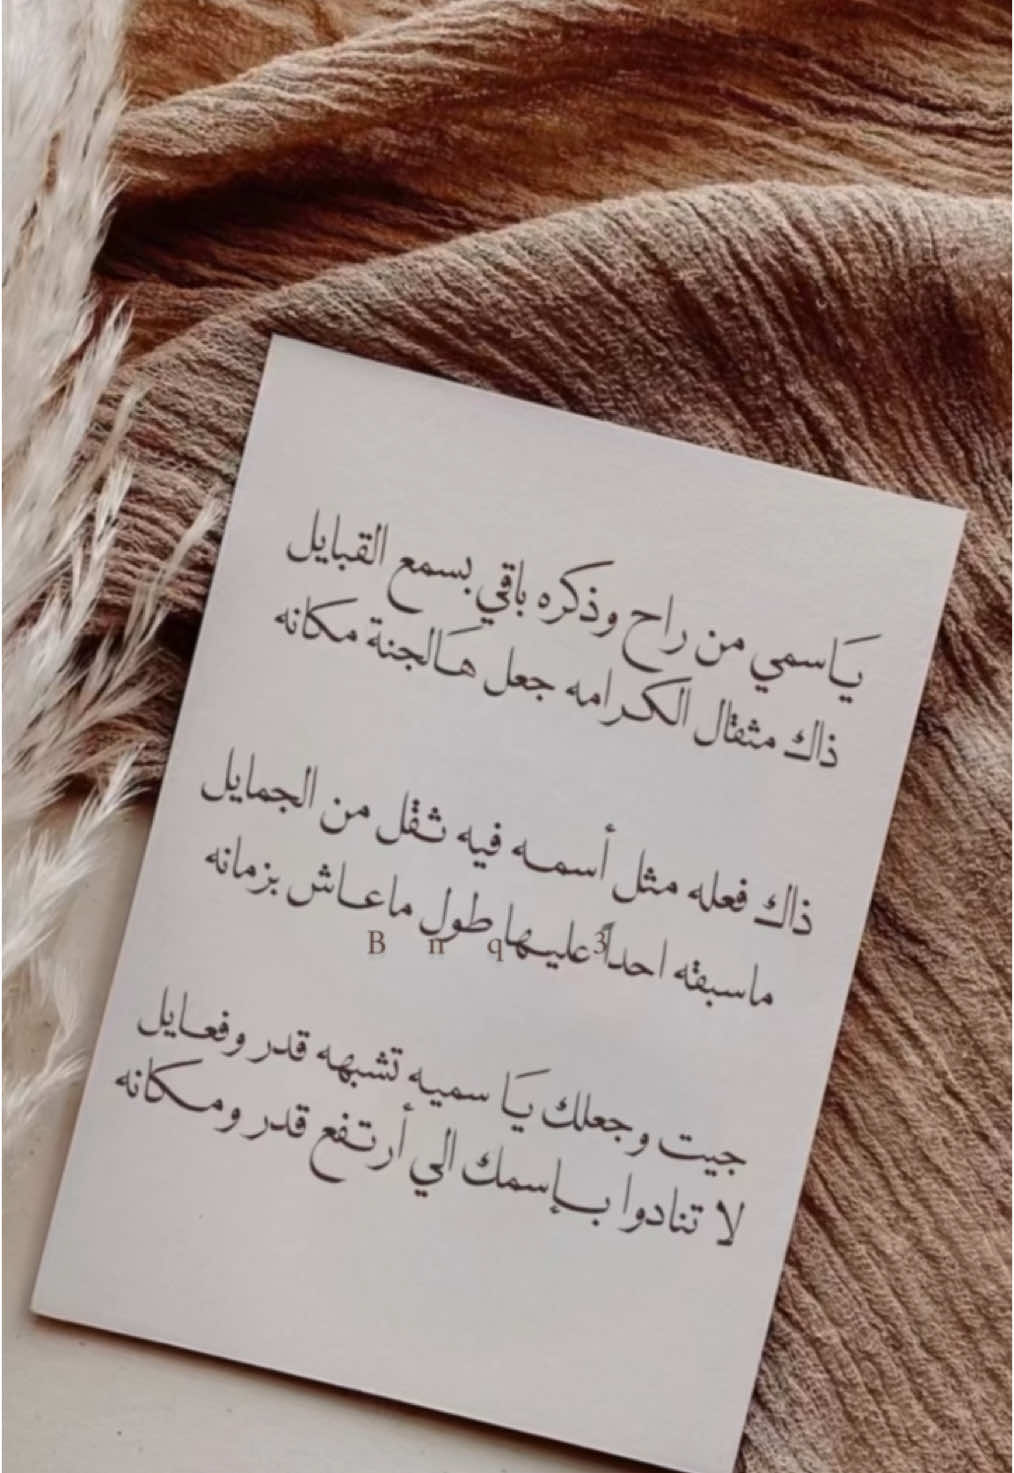 يَاسمي من راح وذكره باقي بسمع القبايل
ذاك مثقال الكرامه جعل هَالجنة مكانه
ذاك فعله مثل أسمه فيه ثقل من الجمايل
ماسبقه احداً عليها طول ماعاش بزمانه
B n q 3
جيت وجعلك يَا سميه تشبهه قدر وفعايل
لا تنادوا بإسمك الي أرتفع قدر ومكانه